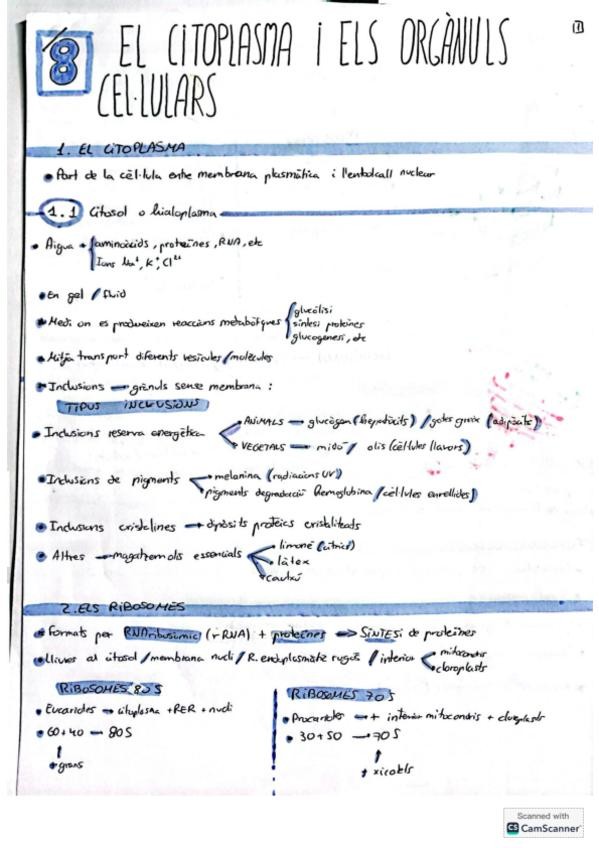 8 EL CITOPLASMA i ELS ORGÀNULS
1
CEL·LULARS
1. EL CITOPLASMA
Part de la cèl·lula entre membrana plasmàtica i l'embolcall nuclear
1.1 Citosol o hialoplasma
Aigua + aminoàcids, proteïnes, RNA, etc
Ions Na⁺, K⁺, Cl
En gel / fluid
Medi on es produeixen reaccions metabòliques
glucòlisi
síntesi proteïnes
glucogenesi, etc
Mitjà transport diferents vesícules / molècules
Inclusions → grànuls sense membrana:
TIPUS INCLUSIONS
Inclusions reserva energètica
ANIMALS → glucògen (hepatòcits) / gotes greix (adipòcits)
VEGETALS → midó / olis (cèl·lules llavors)
Inclusions de pigments
melanina (radiacions UV)
pigments degradació hemoglobina / cèl·lules envellides)
Inclusions cristal·lines → dipòsits protèics cristal·litzats
Altres → magatzem olis essencials
limonè (cítrics)
làtex
cautxú
2. ELS RIBOSOMES
Formats per RNAribosòmic (rRNA) + proteïnes → SÍNTESI de proteïnes
Lliures al citosol / membrana nucli / R. endoplasmàtic rugós / interior
mitocondris
cloroplasts
RIBOSOMES 82S
Eucariotes → citoplasma + RER + nucli
60+40 → 80S
↑
+ grans
RIBOSOMES 70S
Procariotes → + interior mitocondris + cloroplasts
30+50 → 70S
↑
+ xicotets
Scanned with
CS CamScanner